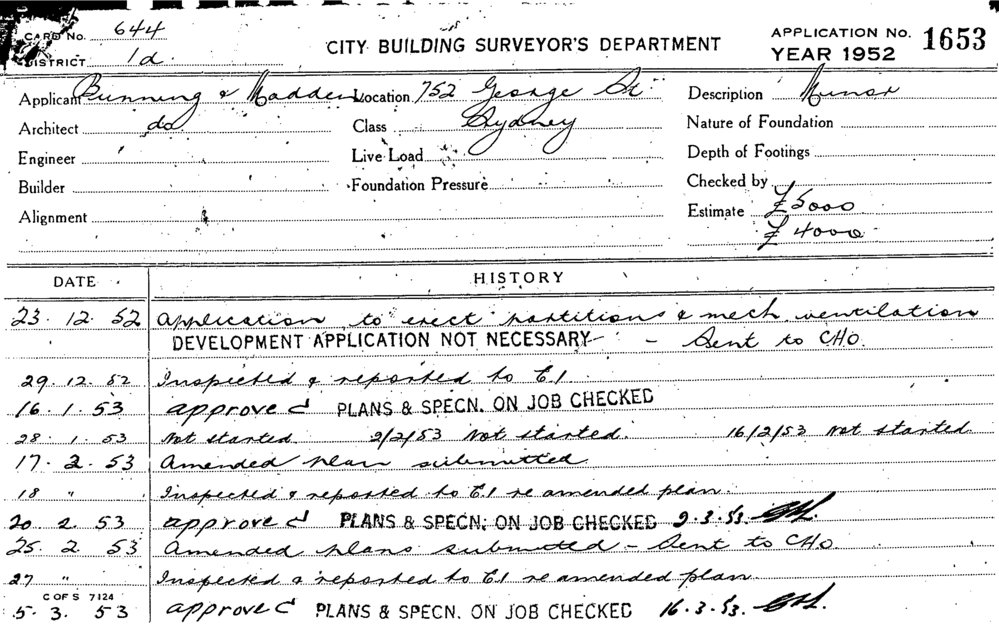 CARD No. 644
CITY BUILDING SURVEYOR'S DEPARTMENT
APPLICATION No. 1653
YEAR 1952
DISTRICT 1d.
Applicant Bunning & Madden Location 752 George St. Description Minor
Architect do Class Sydney Nature of Foundation
Engineer Live Load Depth of Footings
Builder Foundation Pressure Checked by
Alignment Estimate £5000
£4000
DATE HISTORY
23. 12. 52 Application to erect partitions & mech. ventilation
DEVELOPMENT APPLICATION NOT NECESSARY - Sent to CHO.
29. 12. 52 Inspected & reported to E.I.
16. 1. 53 approved PLANS & SPECN. ON JOB CHECKED
28. 1. 53 Not started. 2/2/53 Not started. 16/2/53 Not started.
17. 2. 53 Amended plan submitted.
18 " Inspected & reported to E.I. re amended plan.
20. 2. 53 approved PLANS & SPECN. ON JOB CHECKED 9.3.53.
25. 2. 53 Amended plans submitted - Sent to CHO.
27 " Inspected & reported to E.I. re amended plan.
C OF S 7124
5. 3. 53 approved PLANS & SPECN. ON JOB CHECKED 16.3.53.